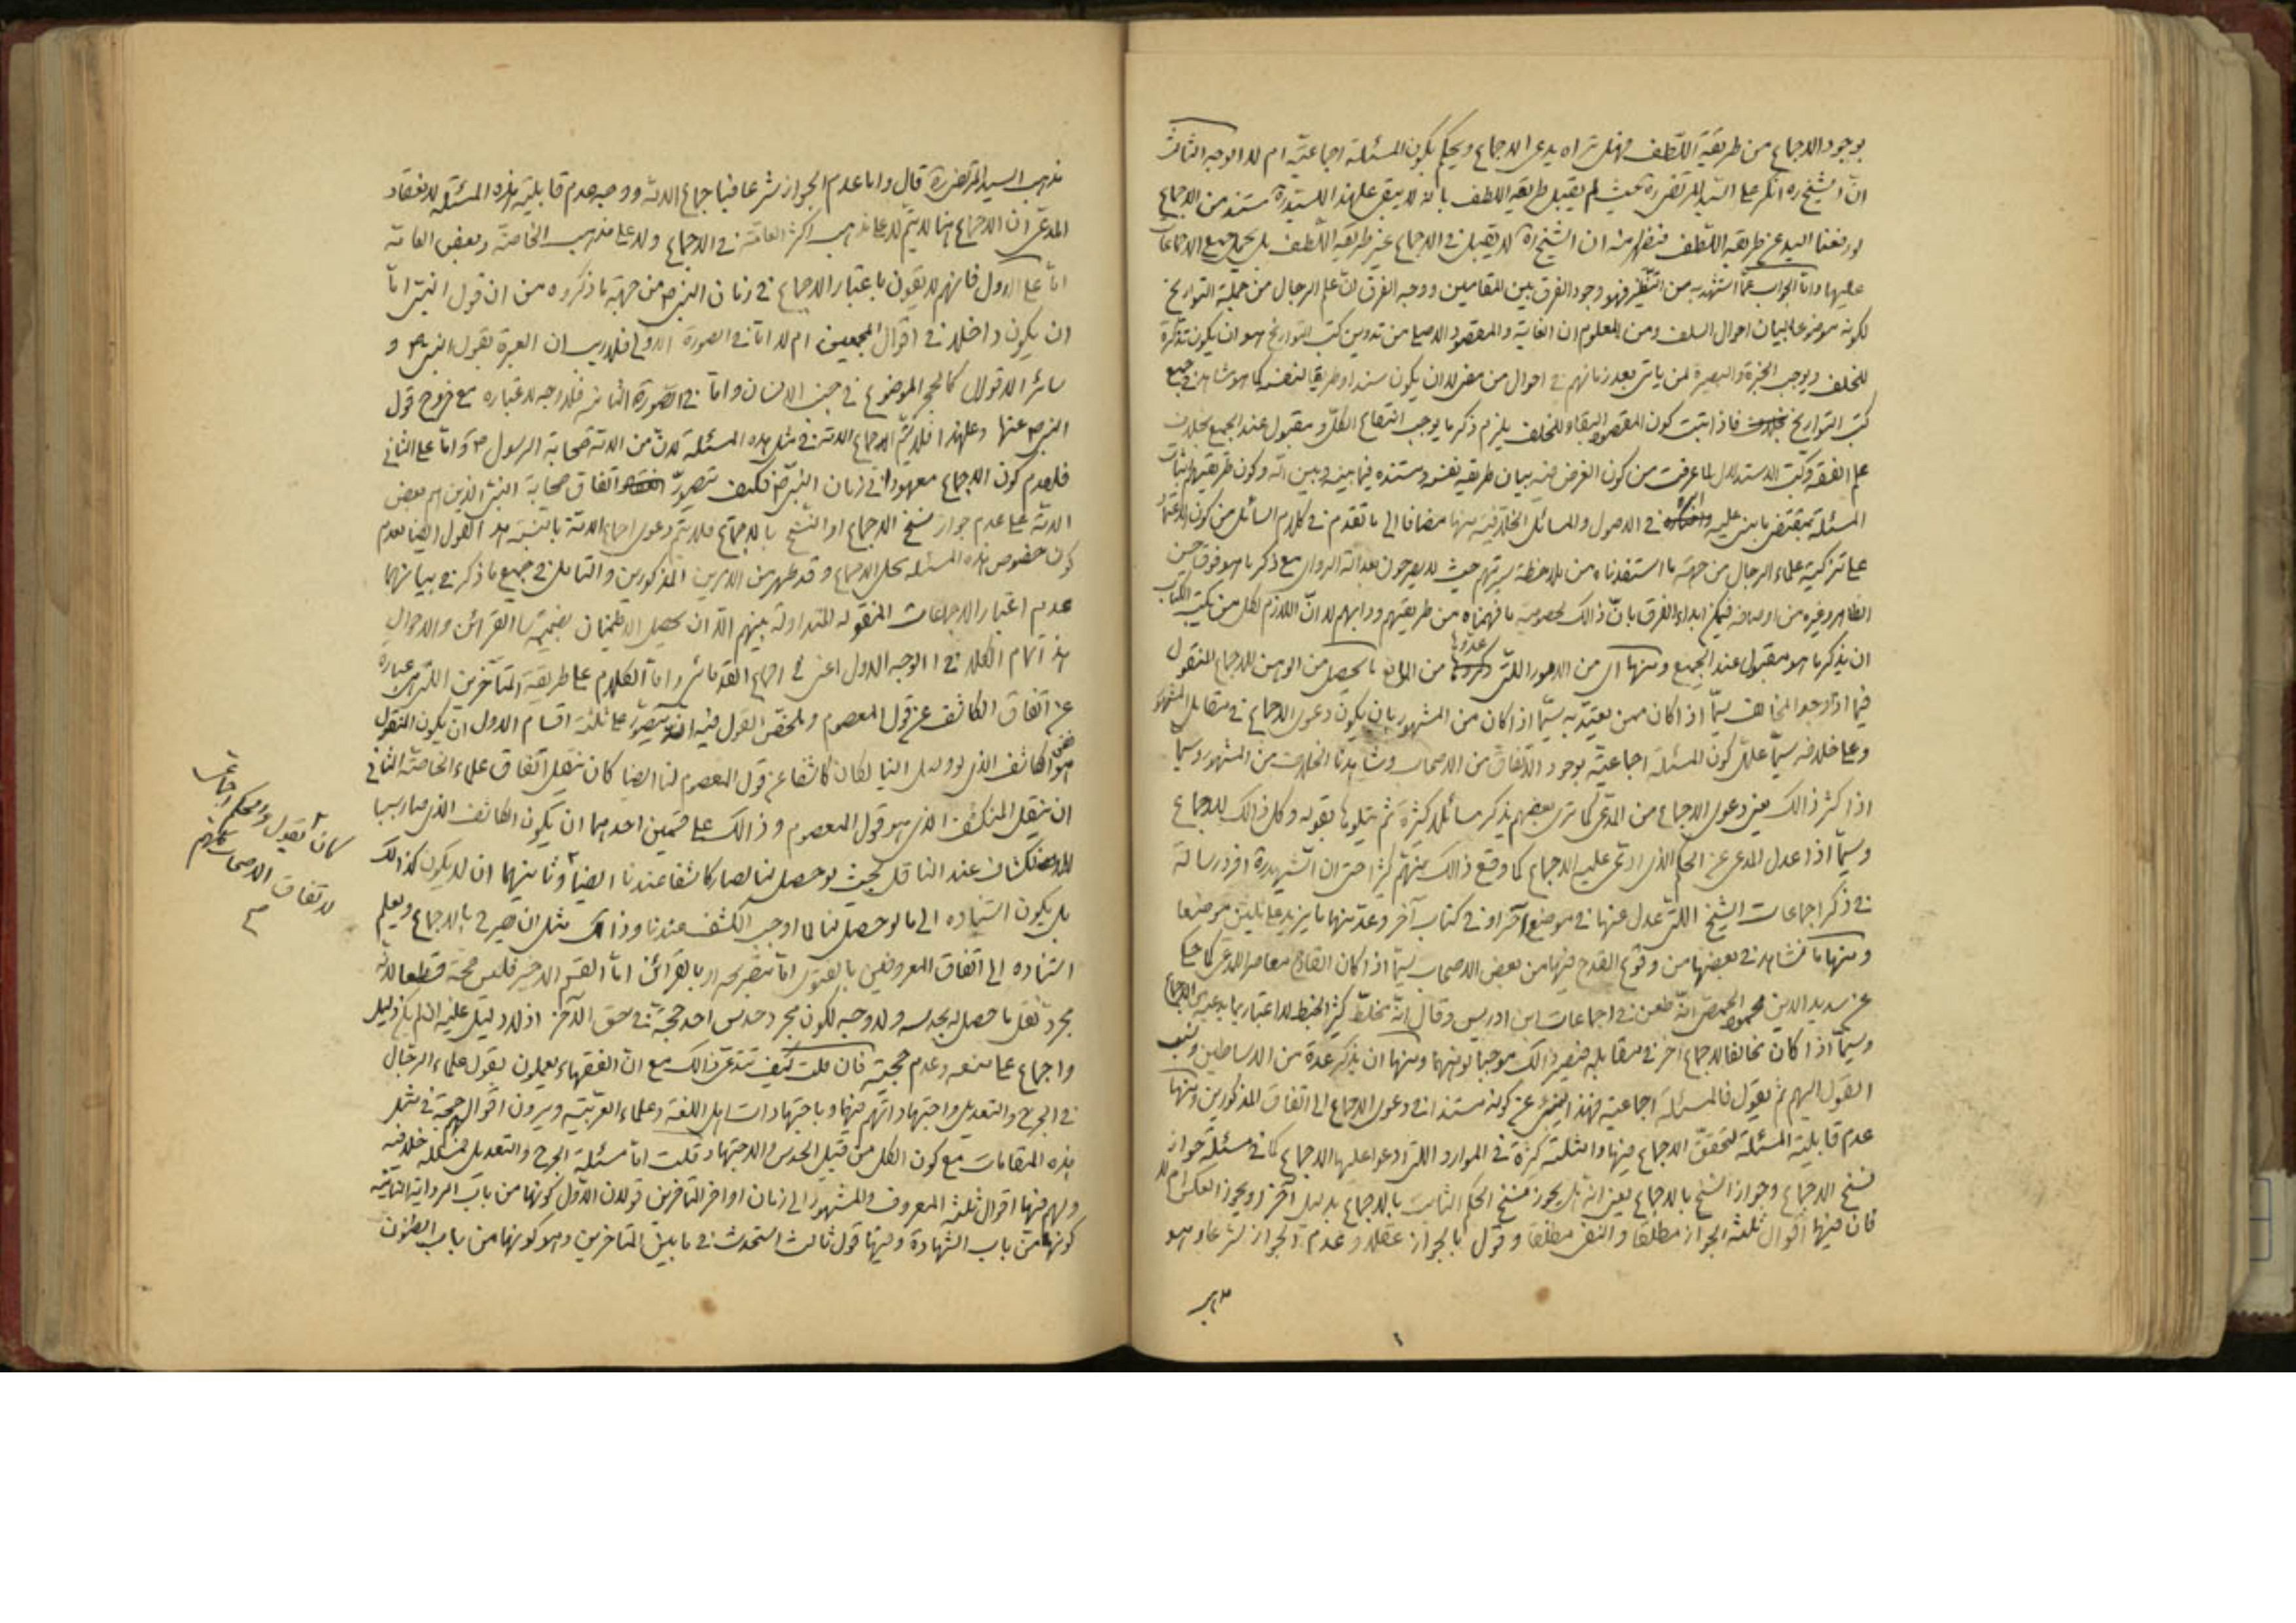 بوجود الاجماع من طريقة اللطف فهل تراه يدعى الاجماع ويحكم بكون المسئلة اجماعية ام لا الوجه الثالث
ان الشيخ ره انكر على السيد المرتضى ره بحيث لم يقبل طريقة اللطف بانه لا يبقى على هذا للسيد ره مستند من الاجماع
لو رفعنا اليد عن طريقة اللطف فيظهر منه ان الشيخ ره لا يقبل فى الاجماع غير طريقة اللطف بل يحمل جميع الاجماعات
عليها واما الجواب عما استشهد به من النظير فهو وجود الفرق بين المقامين ووجه الفرق ان علم الرجال من جملة التواريخ
لكونه موضوعا لبيان احوال السلف ومن المعلوم ان الغاية والمقصود الاصلى من تدوين كتب التواريخ هو ان يكون تذكرة
للخلف ويوجب الخبرة والبصيرة لمن ياتى بعد زمانهم فى احوال من مضى لا ان يكون سندا وطريقا لنفسه كما هو شاهد فى جميع
كتب التواريخ فاذا ثبت كون المقصود البقاء للخلف يلزم ذكر ما يوجب انتفاع الكل ومقبول عند الجميع بخلاف
علم الفقه وكتب الاستدلال لما عرفت من كون الغرض فيه بيان طريقة نفسه ومستنده فيما بينه وبين الله وكون طريقتهم اثبات
المسئلة بمقتضى ما بنى عليه فى الاصول والمسائل الخلافية منها مضافا الى ما تقدم فى كلام السائل من كون الاعتماد
على تزكية علماء الرجال من جهة ما استفدناه من ملاحظة سيرتهم حيث لا يصرحون بعدالة الراوى مع ذكر ما هو فوق حسن
الظاهر وغيره من اوصافه فيمكن ابداء الفرق بان ذالك لخصوصية ما فهمناه من طريقتهم ودابهم لا ان اللازم لكل من يكتب الكتاب
ان يذكر ما هو مقبول عند الجميع ومنها اى من الامور اللتى عدوها من المانع ما يحصل من الوهن للاجماع المنقول
فيما اذا وجد المخالف سيما اذا كان ممن يعتد به سيما اذا كان من المشهور بان يكون دعوى الاجماع فى مقابل المشهور
وعلى خلافه سيما علل كون المسئلة اجماعية بوجود الاتفاق من الاصحاب وشاهدنا الخلاف من المشهور وسيما
اذا كثر ذالك يعنى دعوى الاجماع من المدعى كما ترى بعضهم يذكر مسائل كثيرة ثم يتلوها بقوله وكل ذالك للاجماع
وسيما اذا عدل المدعى عن الحكم الذى ادعى عليه الاجماع كما وقع ذالك منهم كثيرا حتى ان الشهيد ره افرد رسالة
فى ذكر اجماعات الشيخ اللتى عدل عنها فى موضع آخر او فى كتاب آخر وعد منها ما يزيد على ثلثين موضعا
ومنها ما نشاهد فى بعضها من وقوع القدح فيها من بعض الاصحاب سيما اذا كان القادح معاصرا للمدعى كما حكى
عن سديد الدين محمود الحمصى انه طعن فى اجماعات ابن ادريس وقال انه مخلط كثير الخبط لا اعتبار بما يدعيه من الاجماع
وسيما اذا كان مخالفا لاجماع آخر فى مقابله فيصير ذالك موجبا لوهنها ومنها ان يذكر عدة من الاساطين وينسب
القول اليهم ثم يقول فالمسئلة اجماعية فهذا ينبئ عن كونه مستندا فى دعوى الاجماع الى اتفاق المذكورين ومنها
عدم قابلية المسئلة لتحقق الاجماع فيها وامثلته كثيرة فى الموارد اللتى ادعوا عليها الاجماع كما فى مسئلة جواز
نسخ الاجماع وجواز النسخ بالاجماع يعنى انه هل يجوز نسخ الحكم الثابت بالاجماع بدليل آخر او يجوز العكس ام لا
فان فيها اقوال ثلثة الجواز مطلقا والنفى مطلقا وقول بالجواز عقلا وعدم الجواز شرعا وهو
مذهب
مذهب السيد المرتضى ره قال واما عدم الجواز شرعا فباجماع الامة ووجه عدم قابلية هذه المسئلة لانعقاد
المدعى ان الاجماع هنا لا يتم لا على مذهب اكثر العامة فى الاجماع ولا على مذهب الخاصة وبعض العامة
اما على الاول فانهم لا يقولون باعتبار الاجماع فى زمان النبى ص من جهة ما ذكروه من ان قول النبى اما
ان يكون داخلا فى اقوال المجمعين ام لا اما فى الصورة الاولى فلا ريب ان العبرة بقول النبى ص و
سائر الاقوال كالحجر الموضوع فى جنب الانسان واما فى الصورة الثانية فلا وجه لاعتباره مع خروج قول
النبى ص عنها وعلى هذا فلا يتم اجماع الامة فى مثل هذه المسئلة لان من الامة صحابة الرسول ص واما على الثانى
فلعدم كون الاجماع معهودا فى زمان النبى ص فكيف يتصور اتفاق صحابة النبى الذين هم بعض
الامة على عدم جواز نسخ الاجماع او النسخ بالاجماع فلا يتم دعوى اجماع الامة بالنسبة الى القول ايضا لعدم
كون خصوص هذه المسئلة محل الاجماع وقد ظهر من الامرين المذكورين والتامل فى جميع ما ذكر فى بيانهما
عدم اعتبار الاجماعات المنقولة المتداولة بينهم الا ان يحصل الاطمينان بضميمة القرائن والاحوال
هذا تمام الكلام فى الوجه الاول اعنى فى اجماع القدمائى واما الكلام على طريقة المتاخرين اللتى هى عبارة
عن اتفاق الكاشف عن قول المعصوم وملخص القول فيه انه يتصور على ثلثة اقسام الاول ان يكون المنقول
هو الكاشف الذى لو وصل الينا لكان كاشفا عن قول المعصوم لنا ايضا كان ينقل اتفاق علماء الخاصة الثانى
ان ينقل المنكشف الذى هو قول المعصوم وذالك على قسمين احدهما ان يكون الكاشف الذى صار سببا
للانكشاف عند الناقل بحيث لو حصل لنا لصار كاشفا عندنا ايضا وثانيهما ان لا يكون كذالك
بل يكون استناده الى ما لو حصل لنا لما اوجب الكشف عندنا وذالك مثل ان يصرح بالاجماع ويعلم
استناده الى اتفاق المعروفين بالفتوى اما بتصريحه او بالقرائن اما القسم الاخير فليس حجة قطعا لانه
مجرد نقل ما حصل له بحدسه ولا وجه لكون مجرد حدس احد حجة فى حق الآخر اذ لا دليل عليه ان لم يكن دليل
واجماع على منعه وعدم حجيته فان قلت كيف تدعى ذالك مع ان الفقهاء يعملون بقول علماء الرجال
فى الجرح والتعديل واجتهاداتهم فيها وباجتهادات اهل اللغة وعلماء العربية ويرون اقوالهم حجة فى مثل
هذه المقامات مع كون الكل من قبيل الحدس والاجتهاد قلت اما مسئلة الجرح والتعديل فمسئلة خلافية
ولهم فيها اقوال ثلثة المعروف والمشهور الى زمان اواخر المتاخرين قولان الاول كونها من باب الرواية الثانى
كونها من باب الشهادة وفيها قول ثالث استحدث فى ما بين المتاخرين وهو كونها من باب الظنون
كان يقول ومحكم اجماعى
لاتفاق الاصحاب كلهم